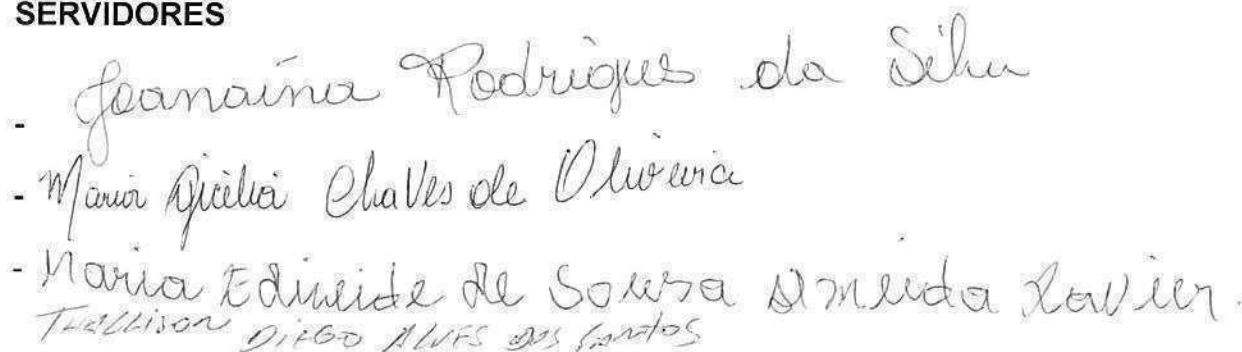 SERVIDORES
- Joanaina Rodrigues da Silva
- Maria Chaves de Oliveira
- Maria Edineide de Sousa Almeida Xavier.
Thallison DIEGO ALVES DOS SANTOS